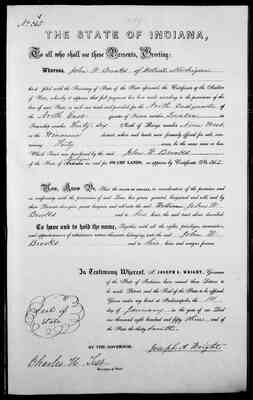 No 362
THE STATE OF INDIANA,
To all who shall see these Presents, Greeting:
Whereas, John W Brooks of Detroit Michigan
has filed with the Secretary of State of the State aforesaid, the Certificate of the Auditor
of State, whereby it appears that full payment has been made according to the provisions of the
law of said State, in such case made and provided for the North East quarter of
the North East quarter of Section number
Township number Thirty Six North of Range number Nine West
in the Winamac District
Forty acres, be the same more or less
Which Tract was purchased by the said John W Brooks
of the State of for SWAMP LANDS, as appears by Certificate No. 362
Now, Know Ye, That the premises, in consideration of the premises and
in conformity with the provisions of said law, has given, granted, bargained and sold, and by
these Presents does give, grant, bargain and sell unto the said John W.
Brooks and to His heirs, the said tract above described
To have and to hold the same, Together with all the rights, privileges, immunities,
and appurtenances of whatsoever nature thereunto belonging, unto the said John W
Brooks and to His heirs and assigns forever.
In Testimony Whereof, I, JOSEPH A. WRIGHT, Governor
of the State of Indiana, have caused these Letters to
be made Patent and the Seal of the State to be affixed
Given under my hand at Indianapolis, the
day of January in the year of our Lord
one thousand eight hundred and fifty three and of
the State the thirty seventh
Seal of
State
BY THE GOVERNOR, Joseph A Wright
Charles H. Test
Secretary of State